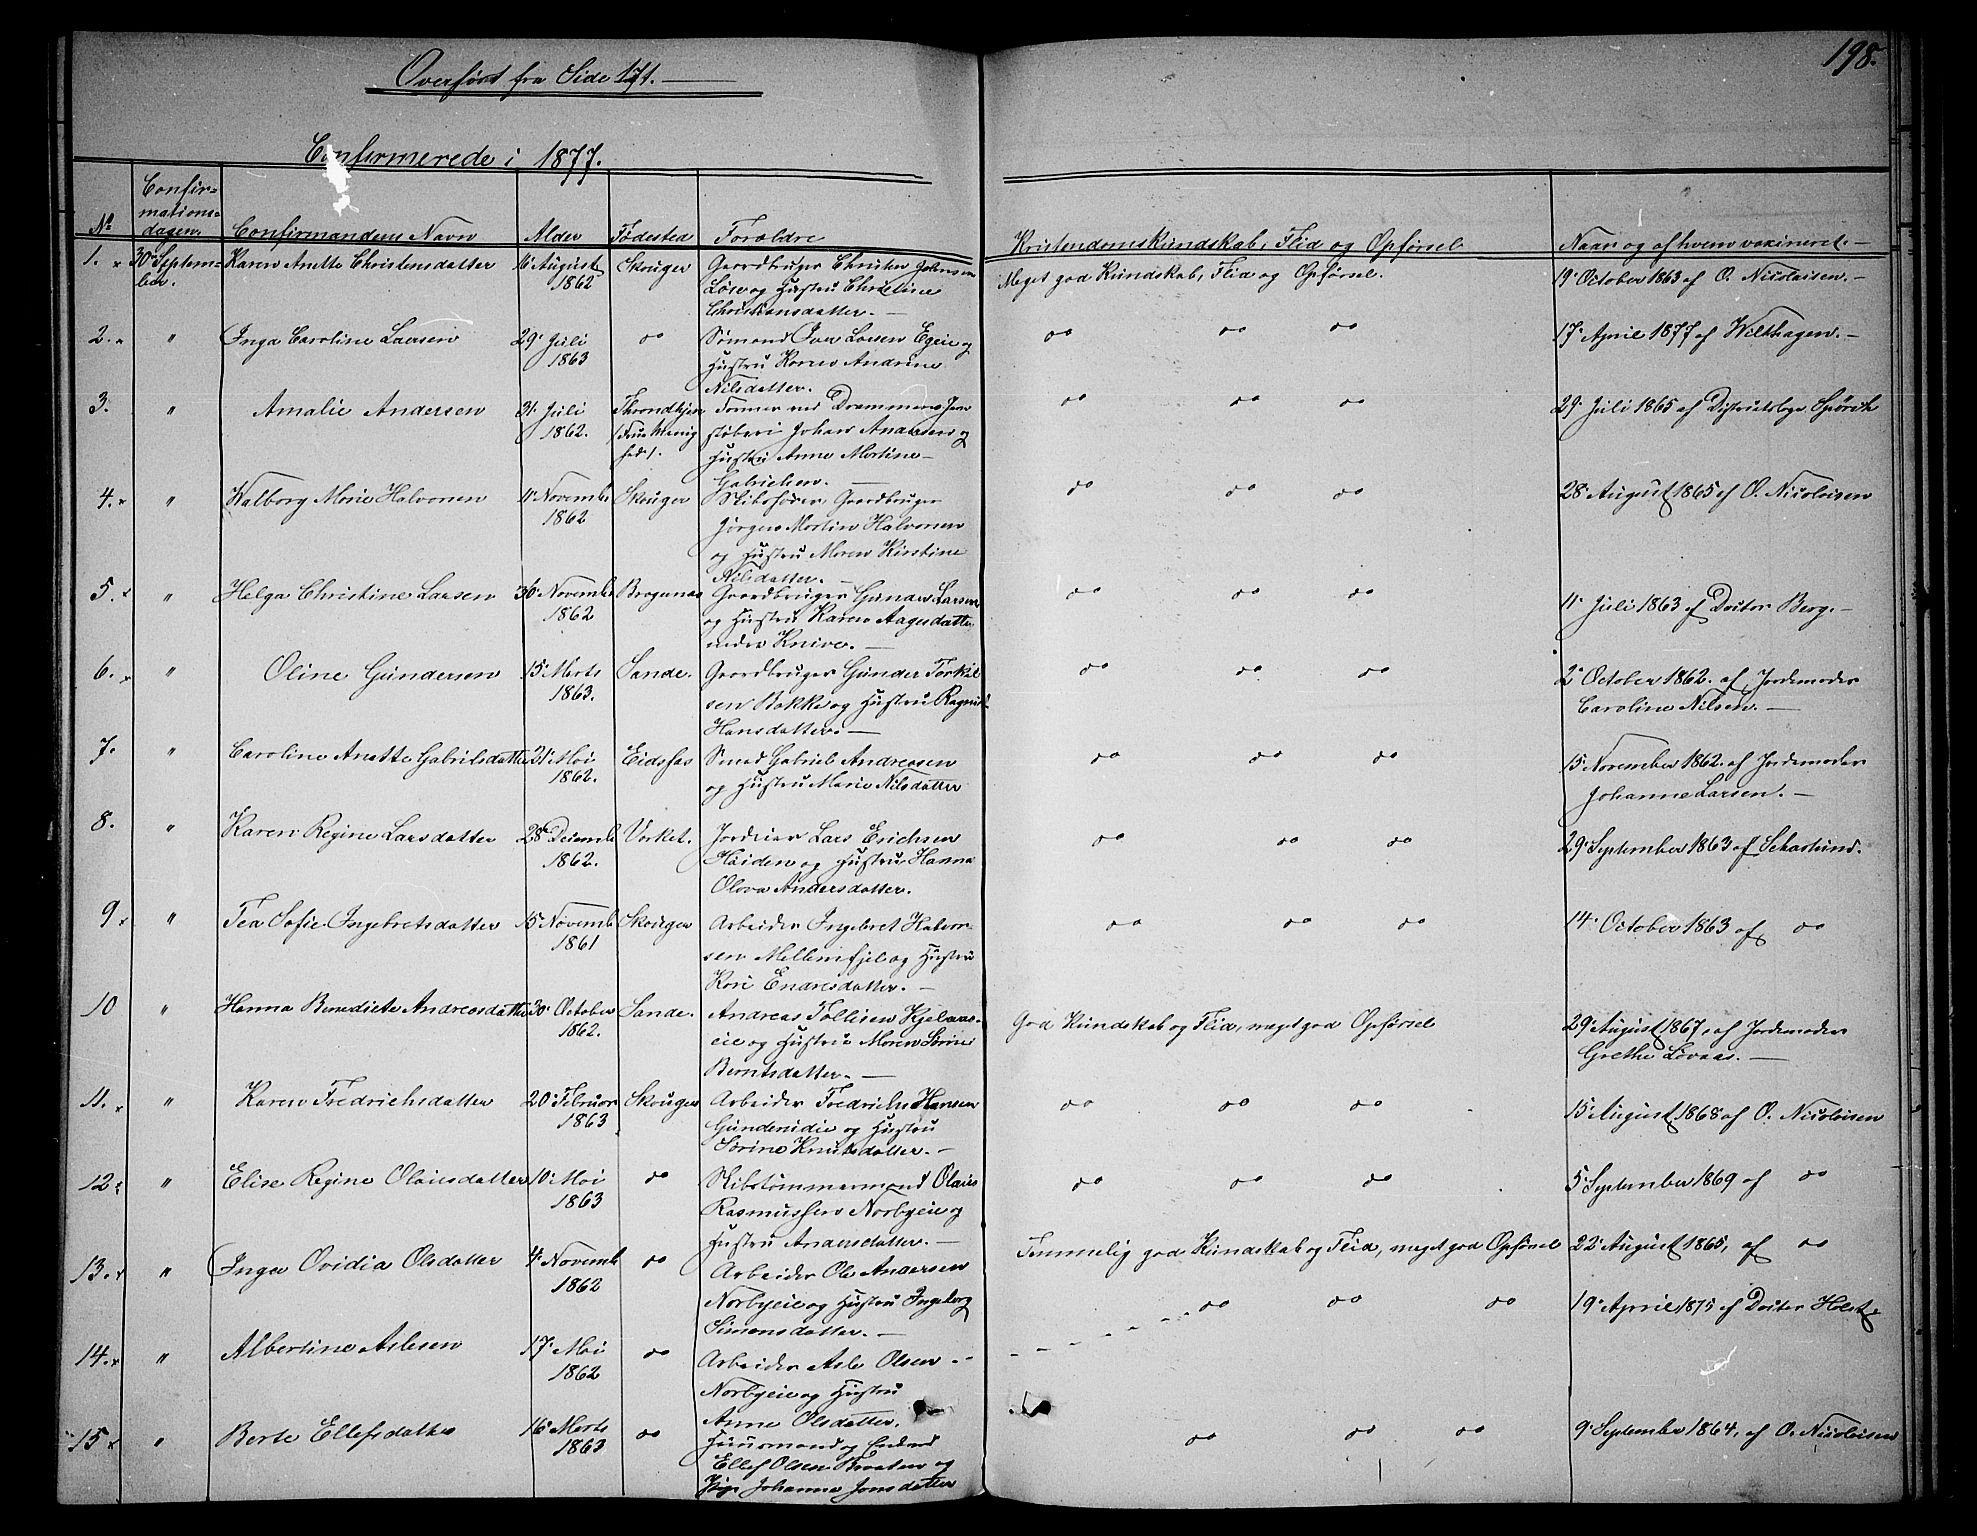 198.
Overført fra Side 171.
Confirmerede i 1877.
No Confirmationsdagen. Confirmandens Navn Alder Fødested Forældre Kristendomskundskab, Flid og Opførsel Naar og af hvem vaxineret.
1. 30 September. Karen Anette Christensdatter 16 August 1862 Skouger Gaardbruger Christen Johnsen
og Hustru Christine
Christiansdatter. Meget god Kundskab, Flid og Opførsel. 19 October 1863 af O. Nicolaisen.
2. " Inga Caroline Larsen 29 Juli 1863 do Sømand Iver Larsen Egeie og
Hustru Karen Andrine
Nilsdatter. do do do 17 April 1877 af Wilthagen.
3. " Amalie Andersen 31 Juli 1862. Throndhjem Former ved Drammens Jern
støberi Johan Andersen og
Hustru Anne Martine
Gabrielsen. do do do 29 Juli 1865 af
4. " Walborg Marie Halvorsen 11 Novemb. 1862 Skouger Skibsfører Gaardbruger
Jørgen Martin Halvorsen
og Hustru Maren Kirstine
Nilsdatter. do do do 28 August 1865 af O. Nicolaisen
5. " Helga Christine Larsen 30 Novemb. 1862 Bragernæs Gaardbruger Gunder Larsen
og Hustru Karen Aagesdatter
nedre Knive. do do do 11 Juli 1863 af Doctor Berg.
6. " Oline Gundersen 15 Marts 1863. Sande. Gaardbruger Gunder Torkil
sen Bakke og Hustru
Hansdatter. do do do 2 October 1862. af Jordemoder
Caroline Nilsen.
7. " Caroline Anette Gabrilsdatter 21 Mai 1862. Eidsfos Smed Gabriel Andreasen
og Hustru Marie Nilsdatter do do do 15 November 1862. af Jordemoder
Johanne Larsen.
8. " Karen Regine Larsdatter 28 Decemb. 1862. Lars Erichsen
og Hustru Hanna
Olava Andersdatter. do do do 29 September 1863 af
9 " Tea Sofie Ingebretsdatter 15 Novemb. 1861 Skouger Arbeider Ingebret Halvor-
sen Mellemfjel og Hustru
Kari Endresdatter. do do do 14 October 1863 af do
10 " Hanna Benedicte Andreasdatter 30 October 1862. Sande. Andreas Tollisen
eie og Hustru Maren Sørine
Berntsdatter. God Kundskab og Flid, meget god Opførsel 29 August 1867, af Jordemoder
Grethe
11. " Karen Fredrichsdatter 20 Februar 1863 Skouger Arbeider Fredrich Hansen
og Hustru
Sørine Knutsdatter. do do do 15 August 1868 af O. Nicolaisen
12 " Elise Regine Olausdatter 10 Mai 1863 do Skibstømmermand Olaus
Rasmussen Norbyeie og
Hustru Andersdatter. do do do 5 September 1869 af do
13. " Inga Ovidia Olsdatter 4 Novemb. 1862 do Arbeider Ole Andersen
Norbyeie og Hustru Ingeborg
Simensdatter. Temmelig god Kundskab og Flid, meget god Opførsel 22 August 1865, af do
14. " Albertine Aslesen 17 Mai 1862 do Arbeider Asle Olsen
Norbyeie og Hustru
Anne Olsdatter. do do do 19 April 1875 af Doctor Holst
15 " Berte Ellefsdatter 16 Marts 1863 do Huusmand og Enkemd
Ellef Olsen Braaten og
Pige Johanne Jonsdatter do do do 9 September 1864, af O. Nicolaisen